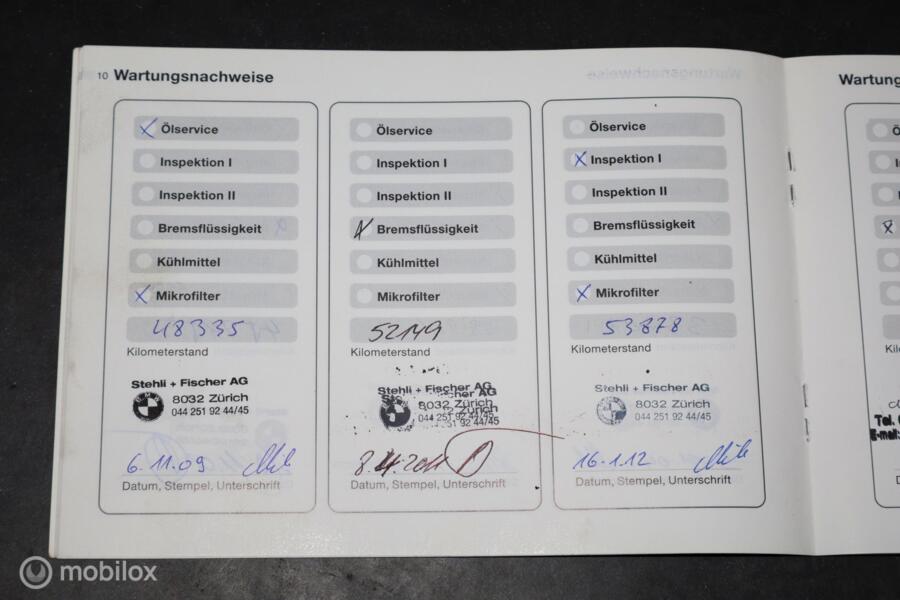 10 Wartungsnachweise
Ölservice
Inspektion I
Inspektion II
Bremsflüssigkeit
Kühlmittel
Mikrofilter
48335
Kilometerstand
Stehli + Fischer AG
8032 Zürich
044 251 92 44/45
6.11.09
Datum, Stempel, Unterschrift
Ölservice
Inspektion I
Inspektion II
Bremsflüssigkeit
Kühlmittel
Mikrofilter
52149
Kilometerstand
Stehli + Fischer AG
8032 Zürich
044 251 92 44/45
Datum, Stempel, Unterschrift
Ölservice
Inspektion I
Inspektion II
Bremsflüssigkeit
Kühlmittel
Mikrofilter
53878
Kilometerstand
Stehli + Fischer AG
8032 Zürich
044 251 92 44/45
16.1.12
Datum, Stempel, Unterschrift
Tel.
E-mail:
mobilox